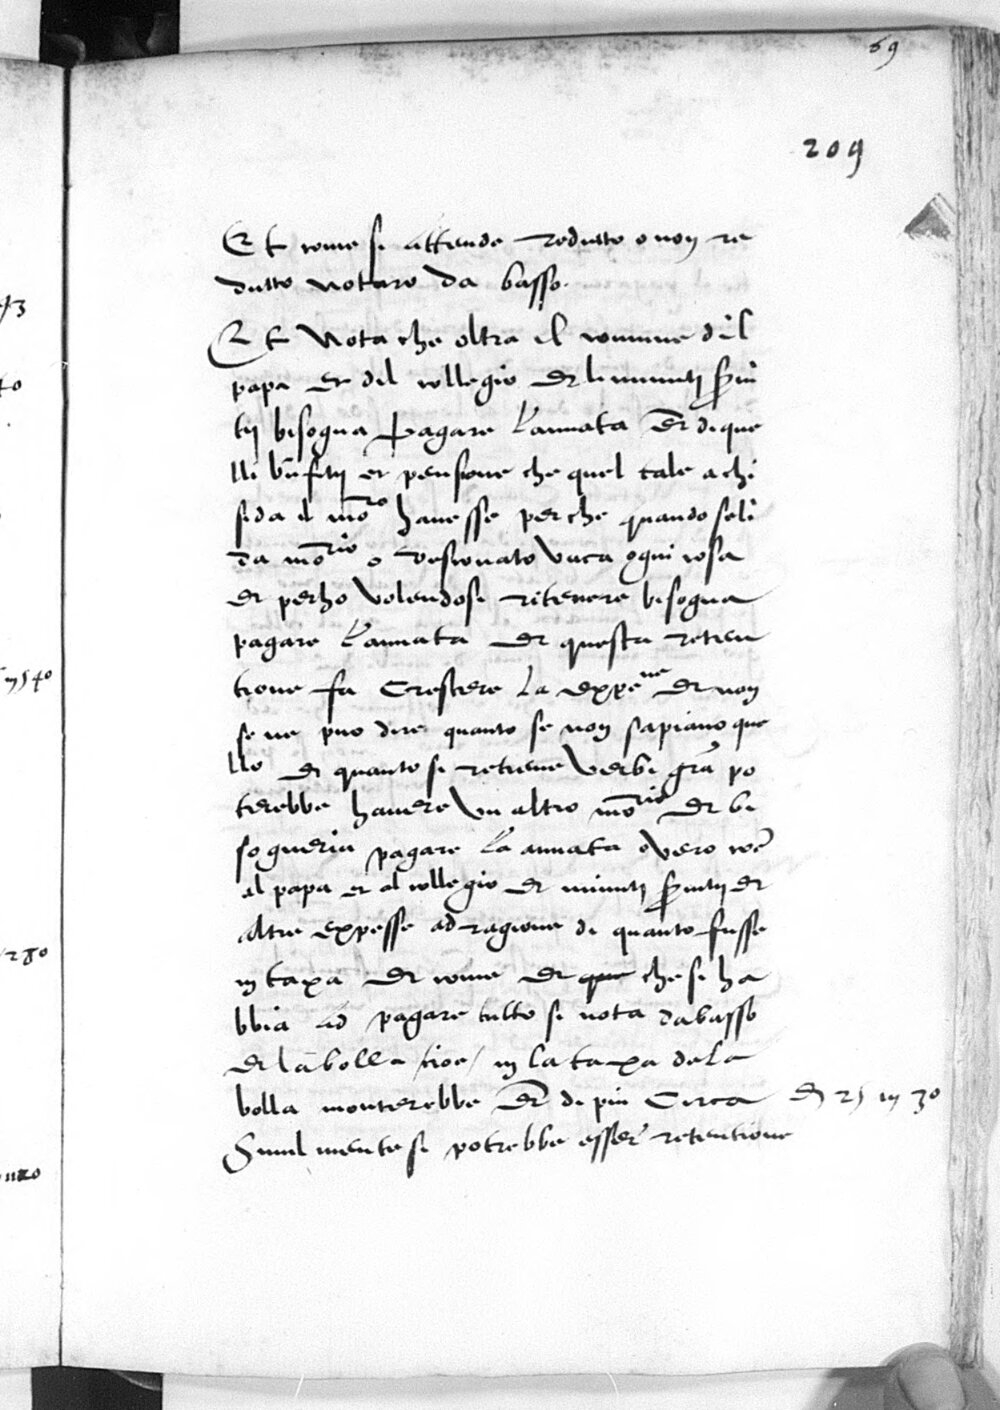 69
209
Et come si attende redutto o non re
dutto notaro da basso.
Et Nota che oltra il comune dil
papa et dil collegio et li minuti s̄vi
tij bisogna pagare l'annata et di que
lli b̄nfitij et pensione che quel tale a chi
si da il mōro havesse perche quando seli
da mōrio o vescovato vaca ogni cosa
et perho volendosi ritenere bisogna
pagare l'annata et questa reten
tione fa Crescere la expēne et non
se ne puo dire quanto se non sapiano que
llo et quanto si retiene verbi grā po
terebbe havere un altro mōrio et bi
sogneria pagare la annata overo coē
al papa et al collegio et minuti s̄vitij et
altre expesse ad ragione di quanto fusse
in taxa et come et que che si ha
bbia ad pagare tutto si nota dabasso
et la bolla /cioe/ in la taxa de la
bolla monterebbe et di piu Circa 25 in 30
Similmente si potrebbe esser retentione